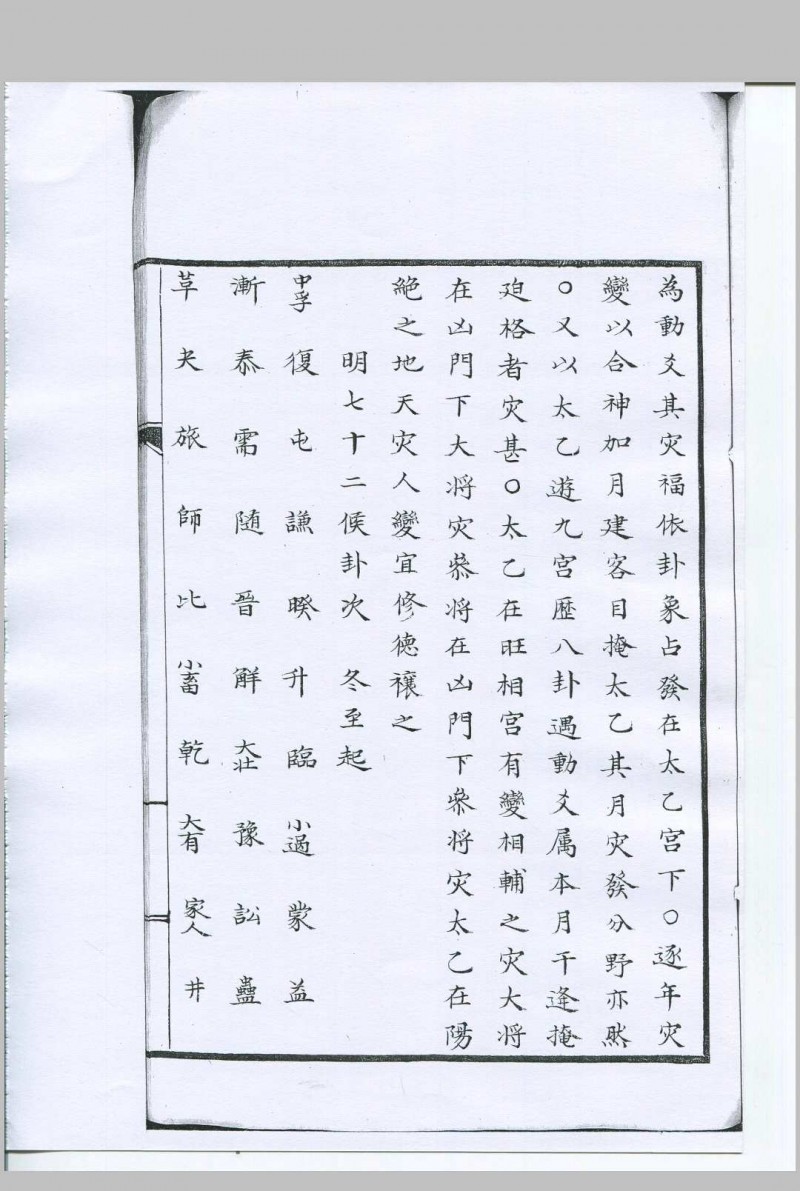 為動爻其灾福依卦象占發在太乙宮下○逐年灾
變以合神加月建客目掩太乙其月灾發分野亦然
○又以太乙遊九宮歷八卦遇動爻属本月干逢掩
廹格者灾甚○太乙在旺相宮有變相輔之灾大将
在凶門下大将灾叅将在凶門下叅将灾太乙在陽
絕之地天灾人變宜修德禳之
明七十二侯卦次 冬至起
中孚 復 屯 謙 睽 升 臨 小過 蒙 益
漸 泰 需 随 晉 解 大壮 豫 訟 蠱
革 夬 旅 師 比 小畜 乾 大有 家人 井